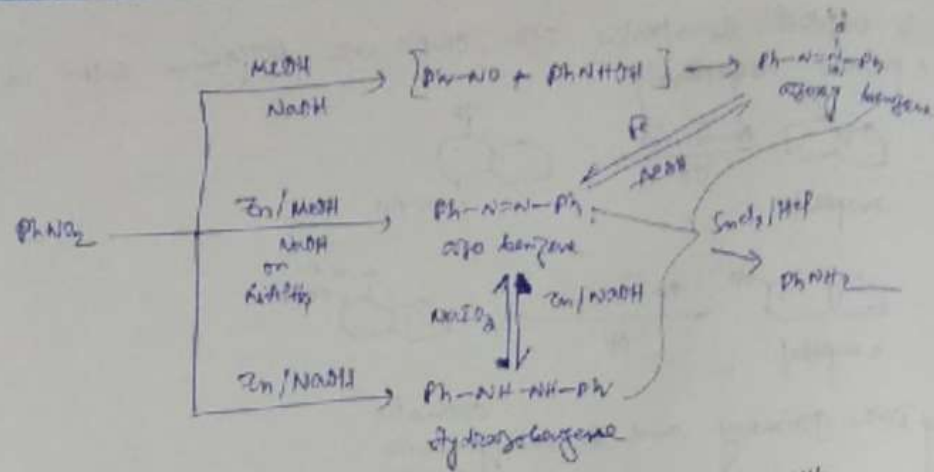 MeOH
NaOH
[Ph-NO + PhNHOH]
Ph-N=N-Ph
azoxy benzene
Fe
PhNO2
Zn/MeOH
NaOH
or
LiAlH4
Ph-N=N-Ph
azo benzene
SnCl2/HCl
PhNH2
Zn/NaOH
Zn/NaOH
Ph-NH-NH-Ph
Hydrazobenzene